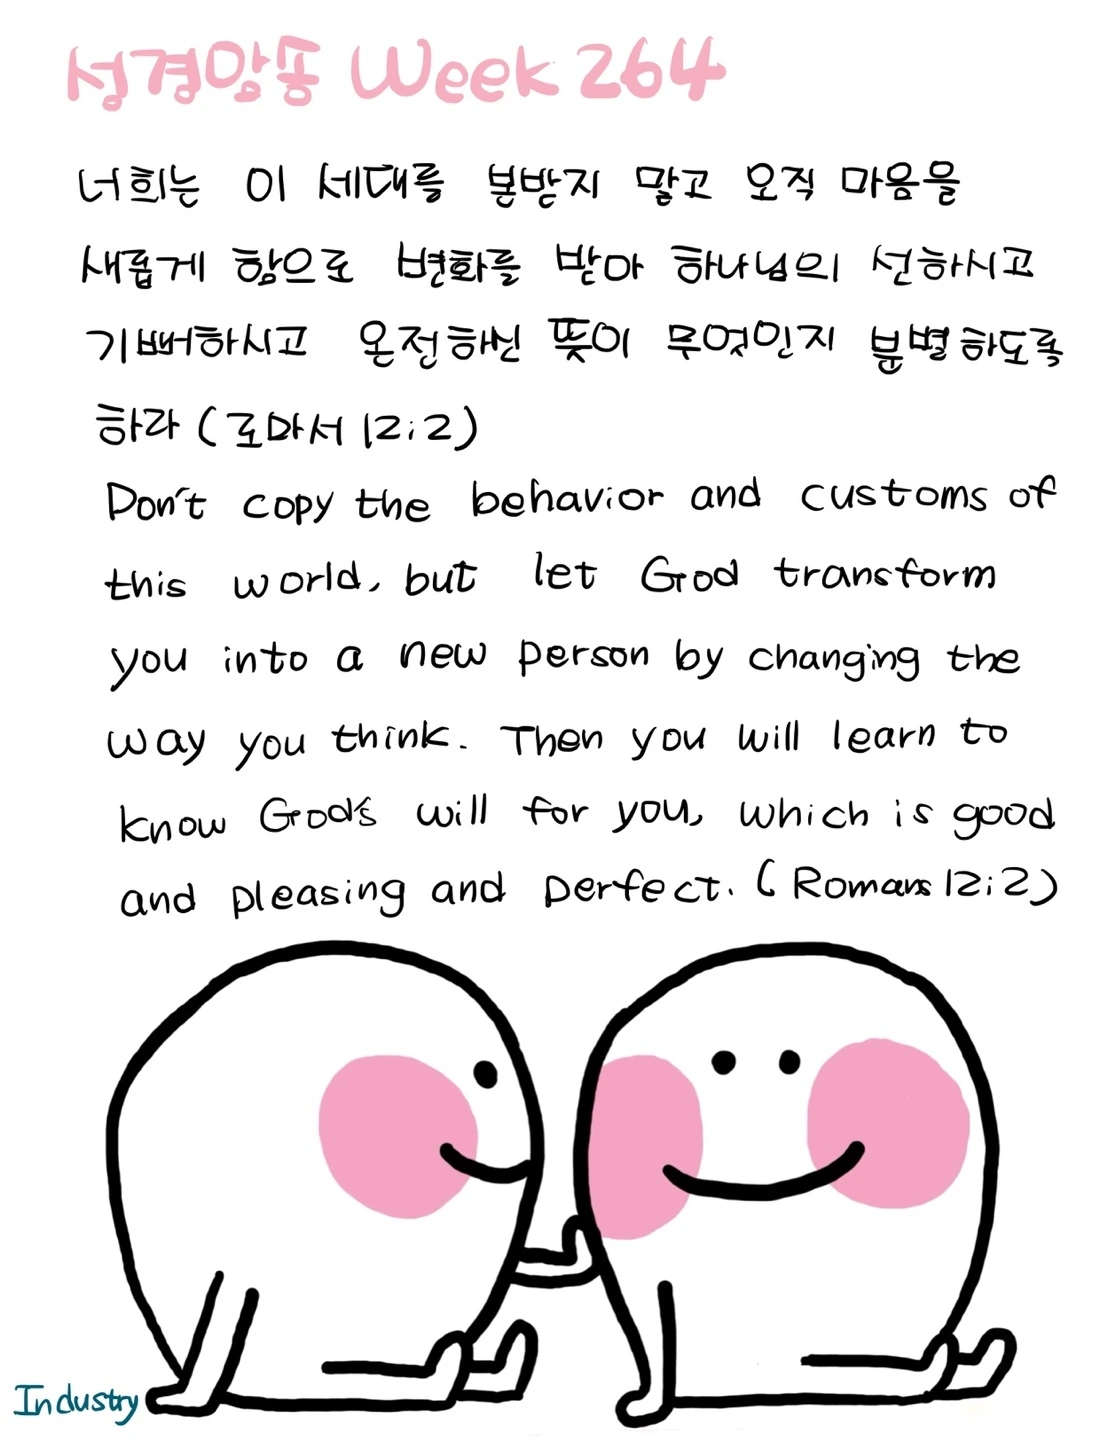 성경암송 Week 264
너희는 이 세대를 본받지 말고 오직 마음을
새롭게 함으로 변화를 받아 하나님의 선하시고
기뻐하시고 온전하신 뜻이 무엇인지 분별하도록
하라 (로마서 12:2)
Don't copy the behavior and customs of
this world, but let God transform
you into a new person by changing the
way you think. Then you will learn to
know God's will for you, which is good
and pleasing and perfect. (Romans 12:2)
Industry